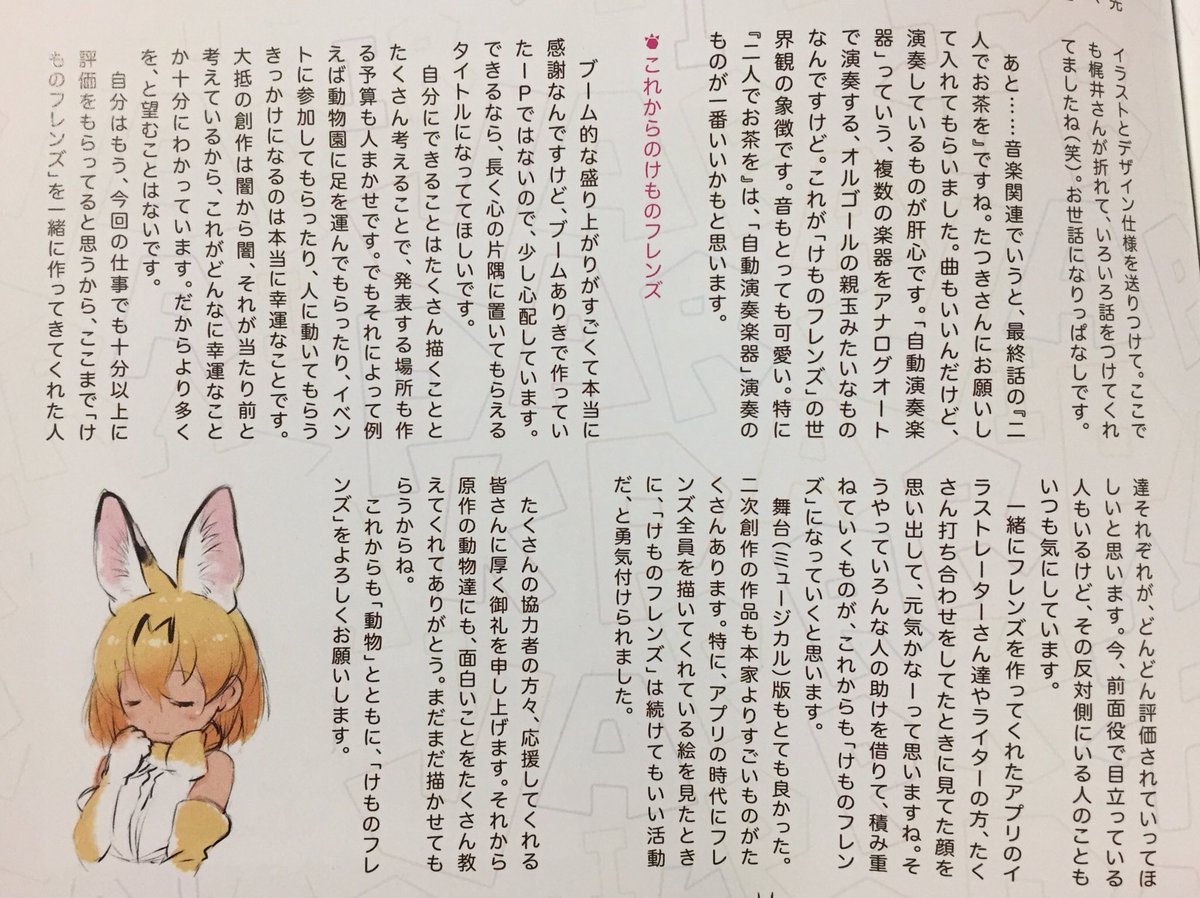 元
、
イラストとデザイン仕様を送りつけて。ここで
も梶井さんが折れて、いろいろ話をつけてくれ
てましたね（笑）。お世話になりっぱなしです。
あと……音楽関連でいうと、最終話の『二
人でお茶を』ですね。たつきさんにお願いし
て入れてもらいました。曲もいいんだけど、
演奏しているものが肝心です。「自動演奏楽
器」っていう、複数の楽器をアナログオート
で演奏する、オルゴールの親玉みたいなもの
なんですけど。これが「けものフレンズ」の世
界観の象徴です。音もとっても可愛い。特に
『二人でお茶を』は、「自動演奏楽器」演奏の
ものが一番いいかもと思います。
これからのけものフレンズ
ブーム的な盛り上がりがすごくて本当に
感謝なんですけど、ブームありきで作ってい
たーPではないので、少し心配しています。
できるなら、長く心の片隅に置いてもらえる
タイトルになっててほしいです。
自分にできることはたくさん描くことと
たくさん考えることで、発表する場所も作
る予算も人まかせです。でもそれによって例
えば動物園に足を運んでもらったり、イベン
トに参加してもらったり、人に動いてもらう
きっかけになるのは本当に幸運なことです。
大抵の創作は闇から闇、それが当たり前と
考えているから、これがどんなに幸運なこと
か十分にわかっています。だからより多く
を、と望むことはないです。
自分はもう、今回の仕事でも十分以上に
評価をもらってると思うから、ここまで「け
ものフレンズ」を一緒に作ってきてくれた人
達それぞれが、どんどん評価されていってほ
しいと思います。今、前面役で目立っている
人もいるけど、その反対側にいる人のことも
いつも気にしています。
一緒にフレンズを作ってくれたアプリのイ
ラストレーターさん達やライターの方、たく
さん打ち合わせをしてたときに見てた顔を
思い出して、元気かなーって思いますね。そ
うやっていろんな人の助けを借りて、積み重
ねていくものが、これからも「けものフレン
ズ」になっていくと思います。
舞台（ミュージカル）版もとても良かった。
二次創作の作品も本家よりすごいものがた
くさんあります。特に、アプリの時代にフレ
ンズ全員を描いてくれている絵を見たとき
に、「けものフレンズ」は続けてもいい活動
だ、と勇気付けられました。
たくさんの協力者の方々、応援してくれる
皆さんに厚く御礼を申し上げます。それから
原作の動物達にも、面白いことをたくさん教
えてくれてありがとう。まだまだ描かせても
らうからね。
これからも「動物」とともに、「けものフレ
ンズ」をよろしくお願いします。